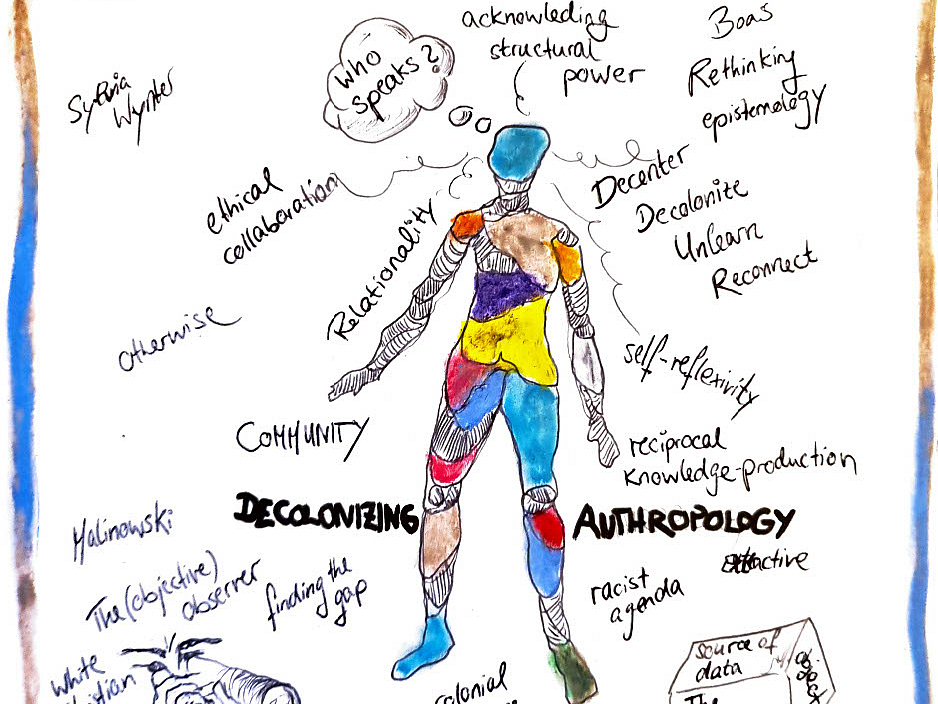 acknowleding
structural
power
Boas
Rethinking
epistemology
who
speaks?
Sylvia
Wynter
ethical
collaboration
Relationality
Decenter
Decolonite
Unlearn
Reconnect
otherwise
self-reflexivity
COMMUNITY
reciprocal
knowledge-production
DECOLONIZING
ANTHROPOLOGY
Malinowski
The (objective)
observer
finding the
gap
racist
agenda
white
source of
data
The
object